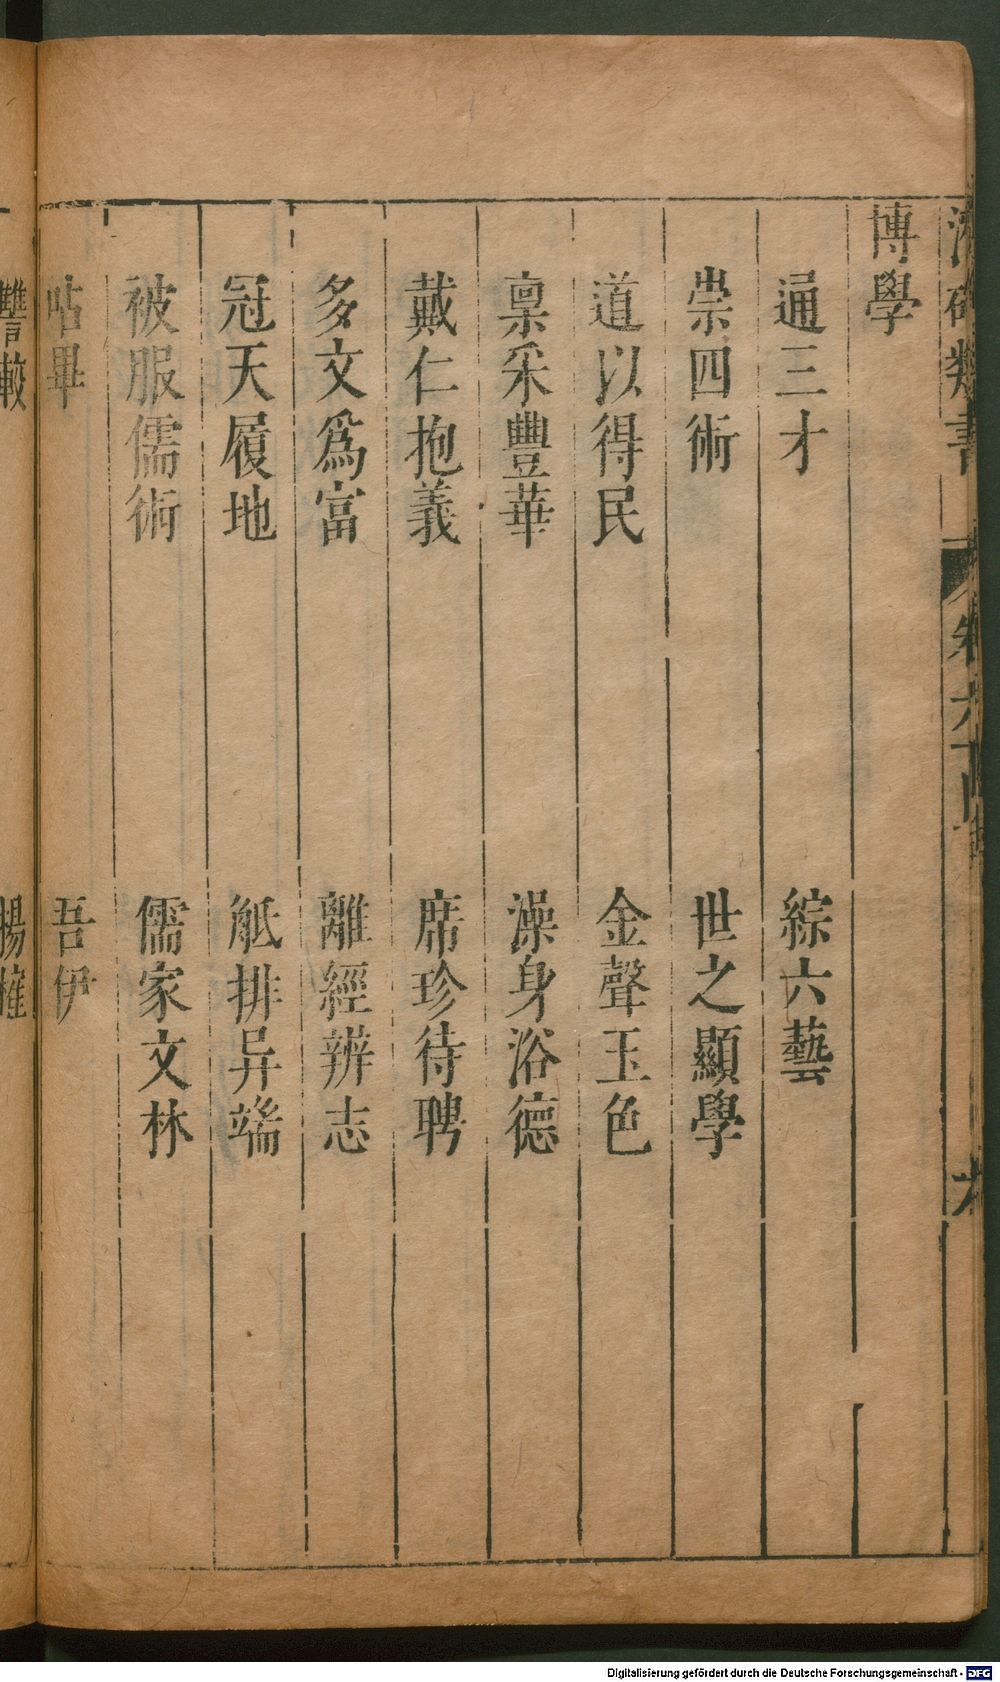 類書
卷六
六
博學
通三才 綜六藝
崇四術 世之顯學
道以得民 金聲玉色
稟采豐華 澡身浴德
戴仁抱義 席珍待聘
多文爲富 離經辨志
冠天履地 觝排异端
被服儒術 儒家文林
呫畢 吾伊
讐較 揚搉
Digitalisierung gefördert durch die Deutsche Forschungsgemeinschaft - DFG